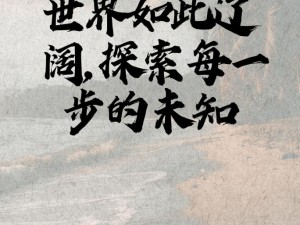 世界如此辽
阔，探索每一
步的未知